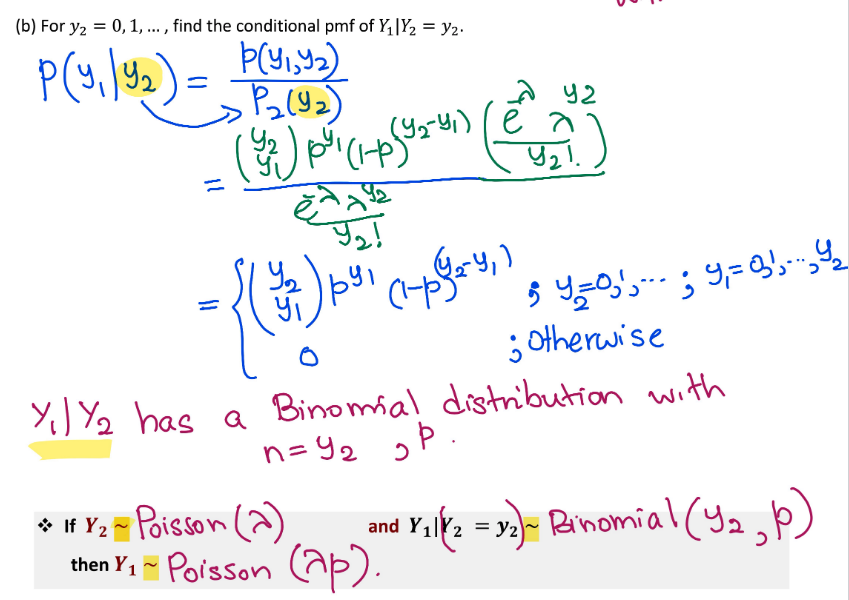 (b) For y₂ = 0, 1, ... , find the conditional pmf of Y₁|Y₂ = y₂.
p(y₁|y₂) = p(y₁,y₂) / P₂(y₂)
= (y₂ y₁) p^y₁ (1-p)^(y₂-y₁) (e^-λ λ^y₂ / y₂!) / (e^-λ λ^y₂ / y₂!)
= { (y₂ y₁) p^y₁ (1-p)^(y₂-y₁) ; y₂=0,1,... ; y₁=0,1,...,y₂
0 ; otherwise
Y₁|Y₂ has a Binomial distribution with
n=y₂ , p.
❖ If Y₂ ~ Poisson(λ) and Y₁|(Y₂ = y₂) ~ Binomial(y₂,p)
then Y₁ ~ Poisson (λp).